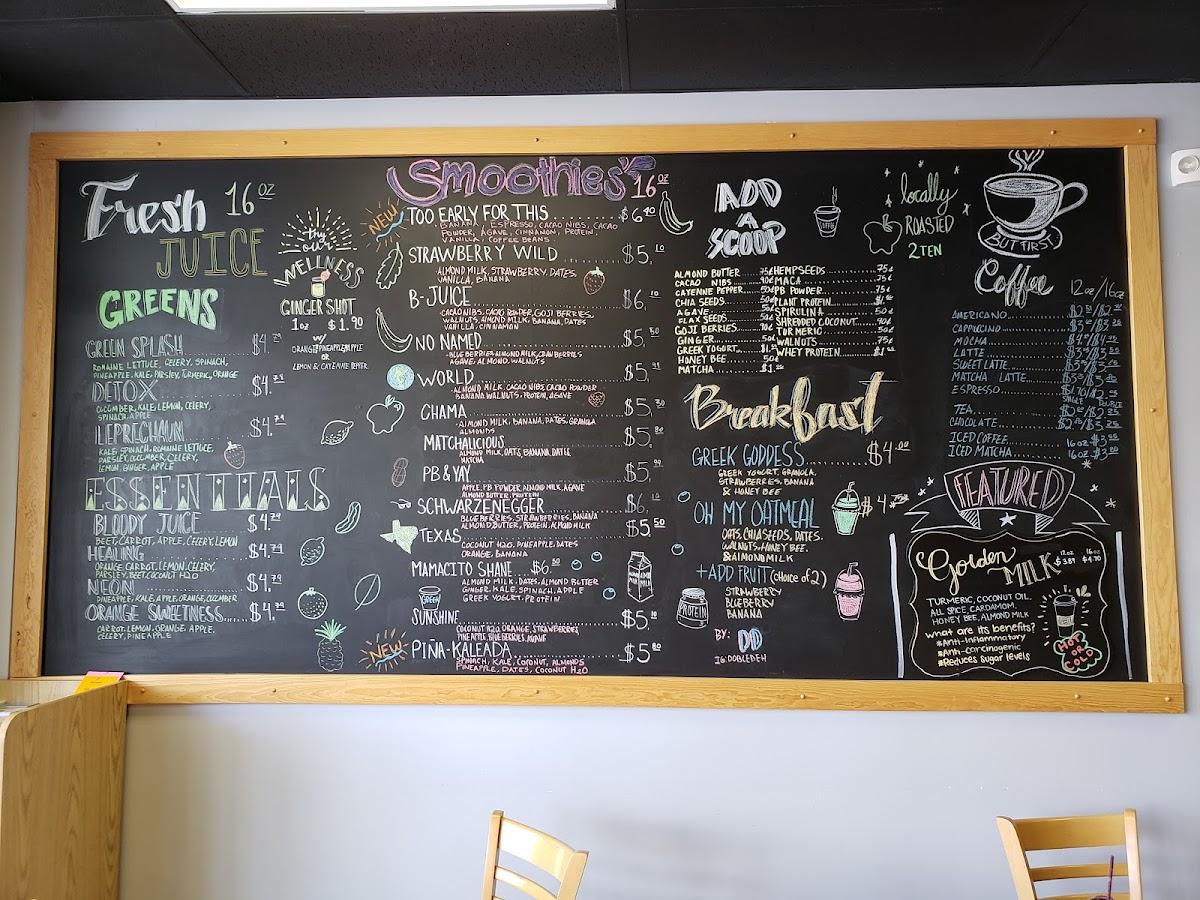 Fresh 16 oz
JUICE
GREENS
GREEN SPLASH $4.79
ROMAINE LETTUCE, CELERY, SPINACH,
PINEAPPLE, KALE, PARSLEY, TURMERIC, ORANGE
DETOX $4.79
CUCUMBER, KALE, LEMON, CELERY,
SPINACH, APPLE
LEPRECHAUN $4.79
KALE, SPINACH, ROMAINE LETTUCE,
PARSLEY, CUCUMBER, CELERY,
LEMON, GINGER, APPLE
ESSENTIALS
BLOODY JUICE $4.79
BEET, CARROT, APPLE, CELERY, LEMON
HEALING $4.79
ORANGE, CARROT, LEMON, CELERY,
PARSLEY, BEET, COCONUT H2O
NEON $4.79
PINEAPPLE, KALE, APPLE, ORANGE, CUCUMBER
ORANGE SWEETNESS $4.
CARROT, LEMON, ORANGE, APPLE,
CELERY, PINEAPPLE
try our
WELLNESS
GINGER SHOT
1oz $1.90
w/
ORANGE, PINEAPPLE, APPLE
OR
LEMON & CAYENNE PEPPER
Smoothies 16 oz
NEW TOO EARLY FOR THIS $6.40
BANANA, ESPRESSO, CACAO NIBS, CACAO
POWDER, AGAVE, CINNAMON, PROTEIN,
VANILLA, COFFEE BEANS
STRAWBERRY WILD $5.10
ALMOND MILK, STRAWBERRY, DATES
VANILLA, BANANA
B-JUICE $6.10
CACAO NIBS, CACAO POWDER, GOJI BERRIES,
WALNUTS, ALMOND MILK, BANANA, DATES
VANILLA, CINNAMON
NO NAMED $5.50
BLUEBERRIES, ALMOND MILK, CRANBERRIES
AGAVE, ALMOND, WALNUTS
WORLD $5.
ALMOND MILK, CACAO NIBS, CACAO POWDER
BANANA, WALNUTS, PROTEIN, AGAVE
CHAMA $5.30
ALMOND MILK, BANANA, DATES, GRANOLA
ALMONDS
MATCHALICIOUS $5.
ALMOND MILK, OATS, BANANA, DATE
MATCHA
PB & YAY $5.
APPLE, PB POWDER, ALMOND MILK, AGAVE
ALMOND BUTTER, PROTEIN
SCHWARZENEGGER $6.10
BLUEBERRIES, STRAWBERRIES, BANANA
ALMOND BUTTER, PROTEIN, ALMOND MILK
TEXAS $5.50
COCONUT H2O, PINEAPPLE, DATES
ORANGE, BANANA
MAMACITO SHANE $6.50
ALMOND MILK, DATES, ALMOND BUTTER
GINGER, KALE, SPINACH, APPLE
GREEK YOGURT, PROTEIN
GREEN
SUNSHINE $5.
COCONUT H2O, ORANGE, STRAWBERRIES,
PINEAPPLE, BLUEBERRIES, AGAVE
NEW PIÑA-KALEADA $5.80
SPINACH, KALE, COCONUT, ALMONDS
PINEAPPLE, DATES, COCONUT H2O
ADD
A
SCOOP
ALMOND BUTTER 75¢ HEMPSEEDS 75¢
CACAO NIBS 90¢ MACA 75¢
CAYENNE PEPPER 50¢ PB POWDER 75¢
CHIA SEEDS 50¢ PLANT PROTEIN
AGAVE 50¢ SPIRULINA 50¢
FLAX SEEDS SHREDDED COCONUT
GOJI BERRIES TURMERIC
GINGER 50¢ WALNUTS 75¢
GREEK YOGURT WHEY PROTEIN
HONEY BEE 50¢
MATCHA
Breakfast
GREEK GODDESS $4.00
GREEK YOGURT, GRANOLA,
STRAWBERRIES, BANANA
& HONEY BEE
OH MY OATMEAL $4.75
OATS, CHIA SEEDS, DATES,
WALNUTS, HONEY BEE,
& ALMOND MILK
+ADD FRUIT (choice of 2)
STRAWBERRY
BLUEBERRY
BANANA
PROTEIN
BY: DD
IG: DOBLEDEH
locally
ROASTED
2TEN
BUT FIRST
Coffee
12 oz/16 oz
AMERICANO
CAPPUCCINO
MOCHA
LATTE
SWEET LATTE
MATCHA LATTE
ESPRESSO
SINGLE DOUBLE
TEA
CHOCOLATE
ICED COFFEE 16 oz $3.00
ICED MATCHA 16 oz $3.00
FEATURED
Golden
MILK
12 oz 16 oz
TURMERIC, COCONUT OIL,
ALL SPICE, CARDAMOM,
HONEY BEE, ALMOND MILK
what are its benefits?
*Anti-inflammatory
*Anti-carcinogenic
*Reduces sugar levels
HOT
OR
COLD